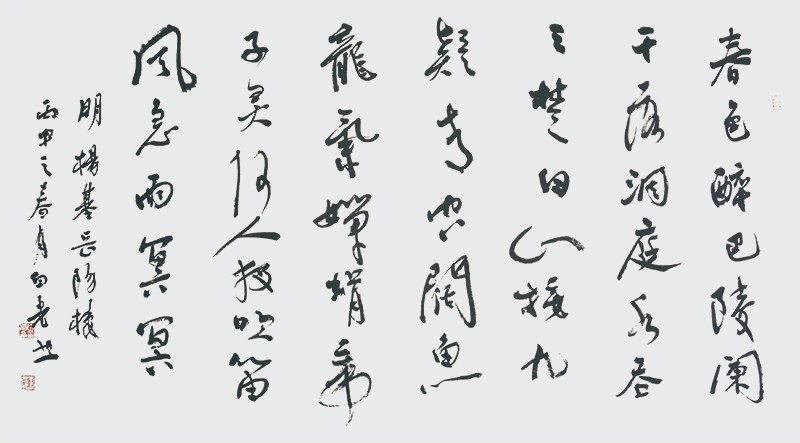 春色醉巴陵阑
干落洞庭水吞
三楚白山接九
疑青空阔鱼
龍氣嬋娟帝
子灵何人夜吹笛
风急雨冥冥
明楊基岳阳楼
丙申之春月白